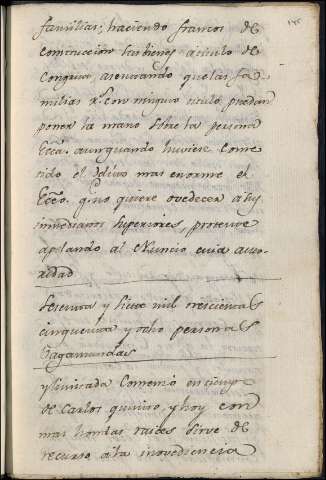 familias; haciendo francos de
contribucion los bienes a titulo de
Congrua, asentando que las fa
milias ni con ningun titulo puedan
poner la mano sobre la persona
Ecca. aunquando huviese come
tido el delito mas enorme el
Ecco. q. no quiere ovedecer a sus
inmediatos superiores, protexe
apelando al Nuncio cuia auto
ridad
Setenta y siete mil trescientas
cinquenta y ocho personas
Vagamundas
y limitada Comenzó en tiempo
de Carlos quinto, y hoy con
mas hondas raices sirve de
recurso a la inovediencia